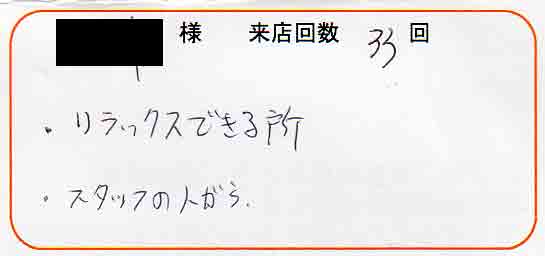 様 来店回数 33 回
・リラックスできる所
・スタッフの人がら.